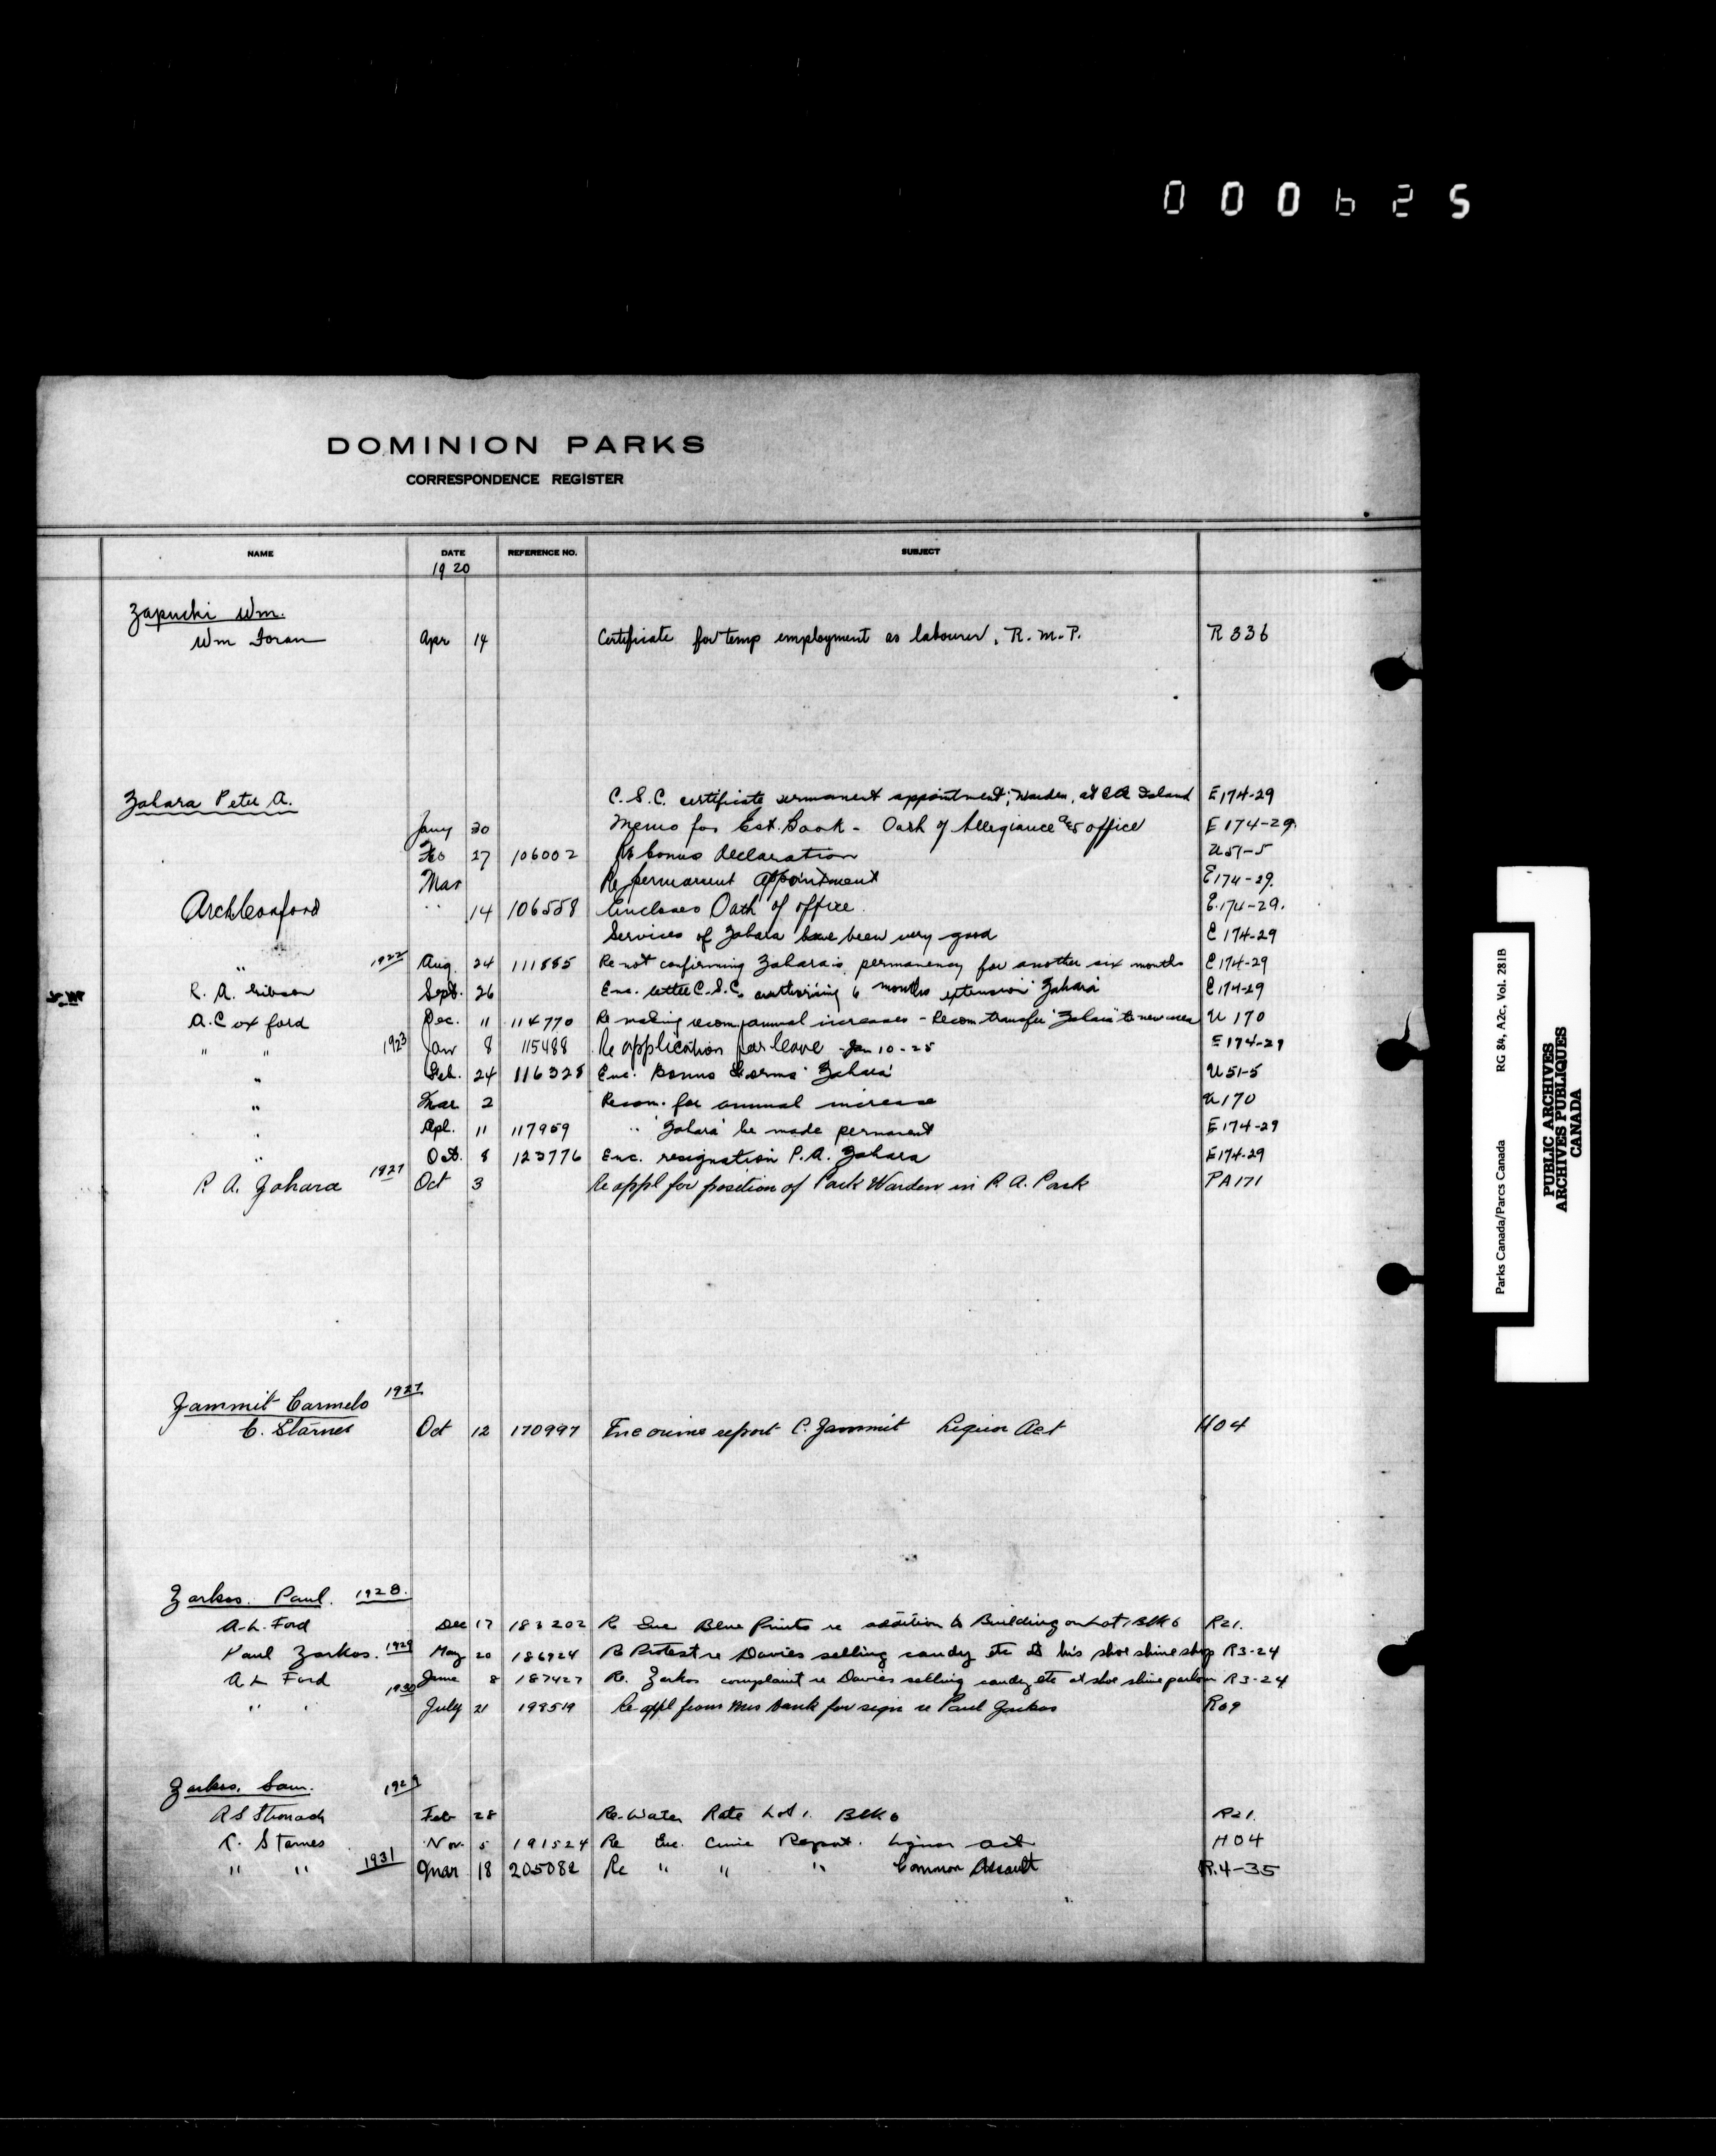 000625
DOMINION PARKS
CORRESPONDENCE REGISTER
NAME DATE REFERENCE NO. SUBJECT
1920
Zapucki Wm.
Wm Foran Apr 14 Certificate for temp employment as labourer, R.M.P. R336
Zahara Peter A. C.S.C. certificate permanent appointment; Warden, at Island E174-29
Jany 30 Memo for Est. Book - Oath of Allegiance office E174-29.
Feb 27 106002 Re bonus declaration U51-5
Mar Re permanent appointment E174-29.
" 14 106558 Encloses Oath of office. E.174-29.
Services of Zahara have been very good E174-29
" 1922 Aug. 24 111885 Re not confirming Zahara's permanency for another six months E174-29
R. A. Gibson Sept. 26 Enc. letter C.S.C. authorizing 6 months extension 'Zahara' E174-29
A.C oxford Dec. 11 114770 Re making recom. annual increases - Recom. transfer 'Zahara' to new area U170
" " 1923 Jan 8 115488 Re application for leave - Jan 10-25 E174-29
" Feb. 24 116328 Enc. Bonus Forms 'Zahara' U51-5
" Mar 2 Recom. for annual increase U170
" Apl. 11 117959 " 'Zahara' be made permanent E174-29
" Oct. 8 123776 Enc. resignation P.A. Zahara E174-29
P. A. Zahara 1927 Oct 3 Re appl for position of Park Warden in P. A. Park PA171
Zammit Carmelo 1927
C. Starnes Oct 12 170997 Enc crime report C. Zammit Liquor Act H04
Zarkos. Paul. 1928.
A.L. Ford Dec 17 183202 Re Enc Blue Prints re addition to Building on Lot 1 Blk 6 R21.
Paul Zarkos. 1929 May 20 186924 Re Protest re Davies selling candy etc at his shoe shine shop R3-24
A L Ford June 8 187427 Re. Zarkos complaint re Davies selling candy etc at shoe shine parlour R3-24
" " 1930 July 21 198519 Re appl from Mrs for sign re Paul Zarkos R69
Zarkos, Sam. 1929
A S Stronach Feb 28 Re-Water Rate Lot 1. Blk 6 R21.
R. Starnes Nov. 5 191524 Re Enc. Crime Report. Liquor act H04
" " 1931 Mar 18 205082 Re " " " Common Assault R.4-35
Parks Canada/Parcs Canada RG 84, A2c, Vol. 281B
PUBLIC ARCHIVES
ARCHIVES PUBLIQUES
CANADA